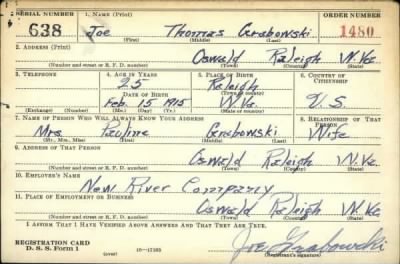 SERIAL NUMBER 1. NAME (Print) ORDER NUMBER
638 Joe Thomas Grabowski 1480
(First) (Middle) (Last)
2. ADDRESS (Print)
Oswald Raleigh W. Va.
(Number and street or R. F. D. number) (Town) (County) (State)
3. TELEPHONE 4. AGE IN YEARS 5. PLACE OF BIRTH 6. COUNTRY OF CITIZENSHIP
25 Raleigh
DATE OF BIRTH (Town or county)
Feb. 15 1915 W. Va. U.S.
(Exchange) (Number) (Mo.) (Day) (Yr.) (State or country)
7. NAME OF PERSON WHO WILL ALWAYS KNOW YOUR ADDRESS 8. RELATIONSHIP OF THAT PERSON
Mrs. Pauline Grabowski Wife
(Mr., Mrs., Miss) (First) (Middle) (Last)
9. ADDRESS OF THAT PERSON
Oswald Raleigh W. Va.
(Number and street or R. F. D. number) (Town) (County) (State)
10. EMPLOYER'S NAME
New River Company
11. PLACE OF EMPLOYMENT OR BUSINESS
Oswald Raleigh W. Va.
(Number and street or R. F. D. number) (Town) (County) (State)
I AFFIRM THAT I HAVE VERIFIED ABOVE ANSWERS AND THAT THEY ARE TRUE.
REGISTRATION CARD
D. S. S. Form 1 (over) Joe Grabowski
(Registrant's signature)